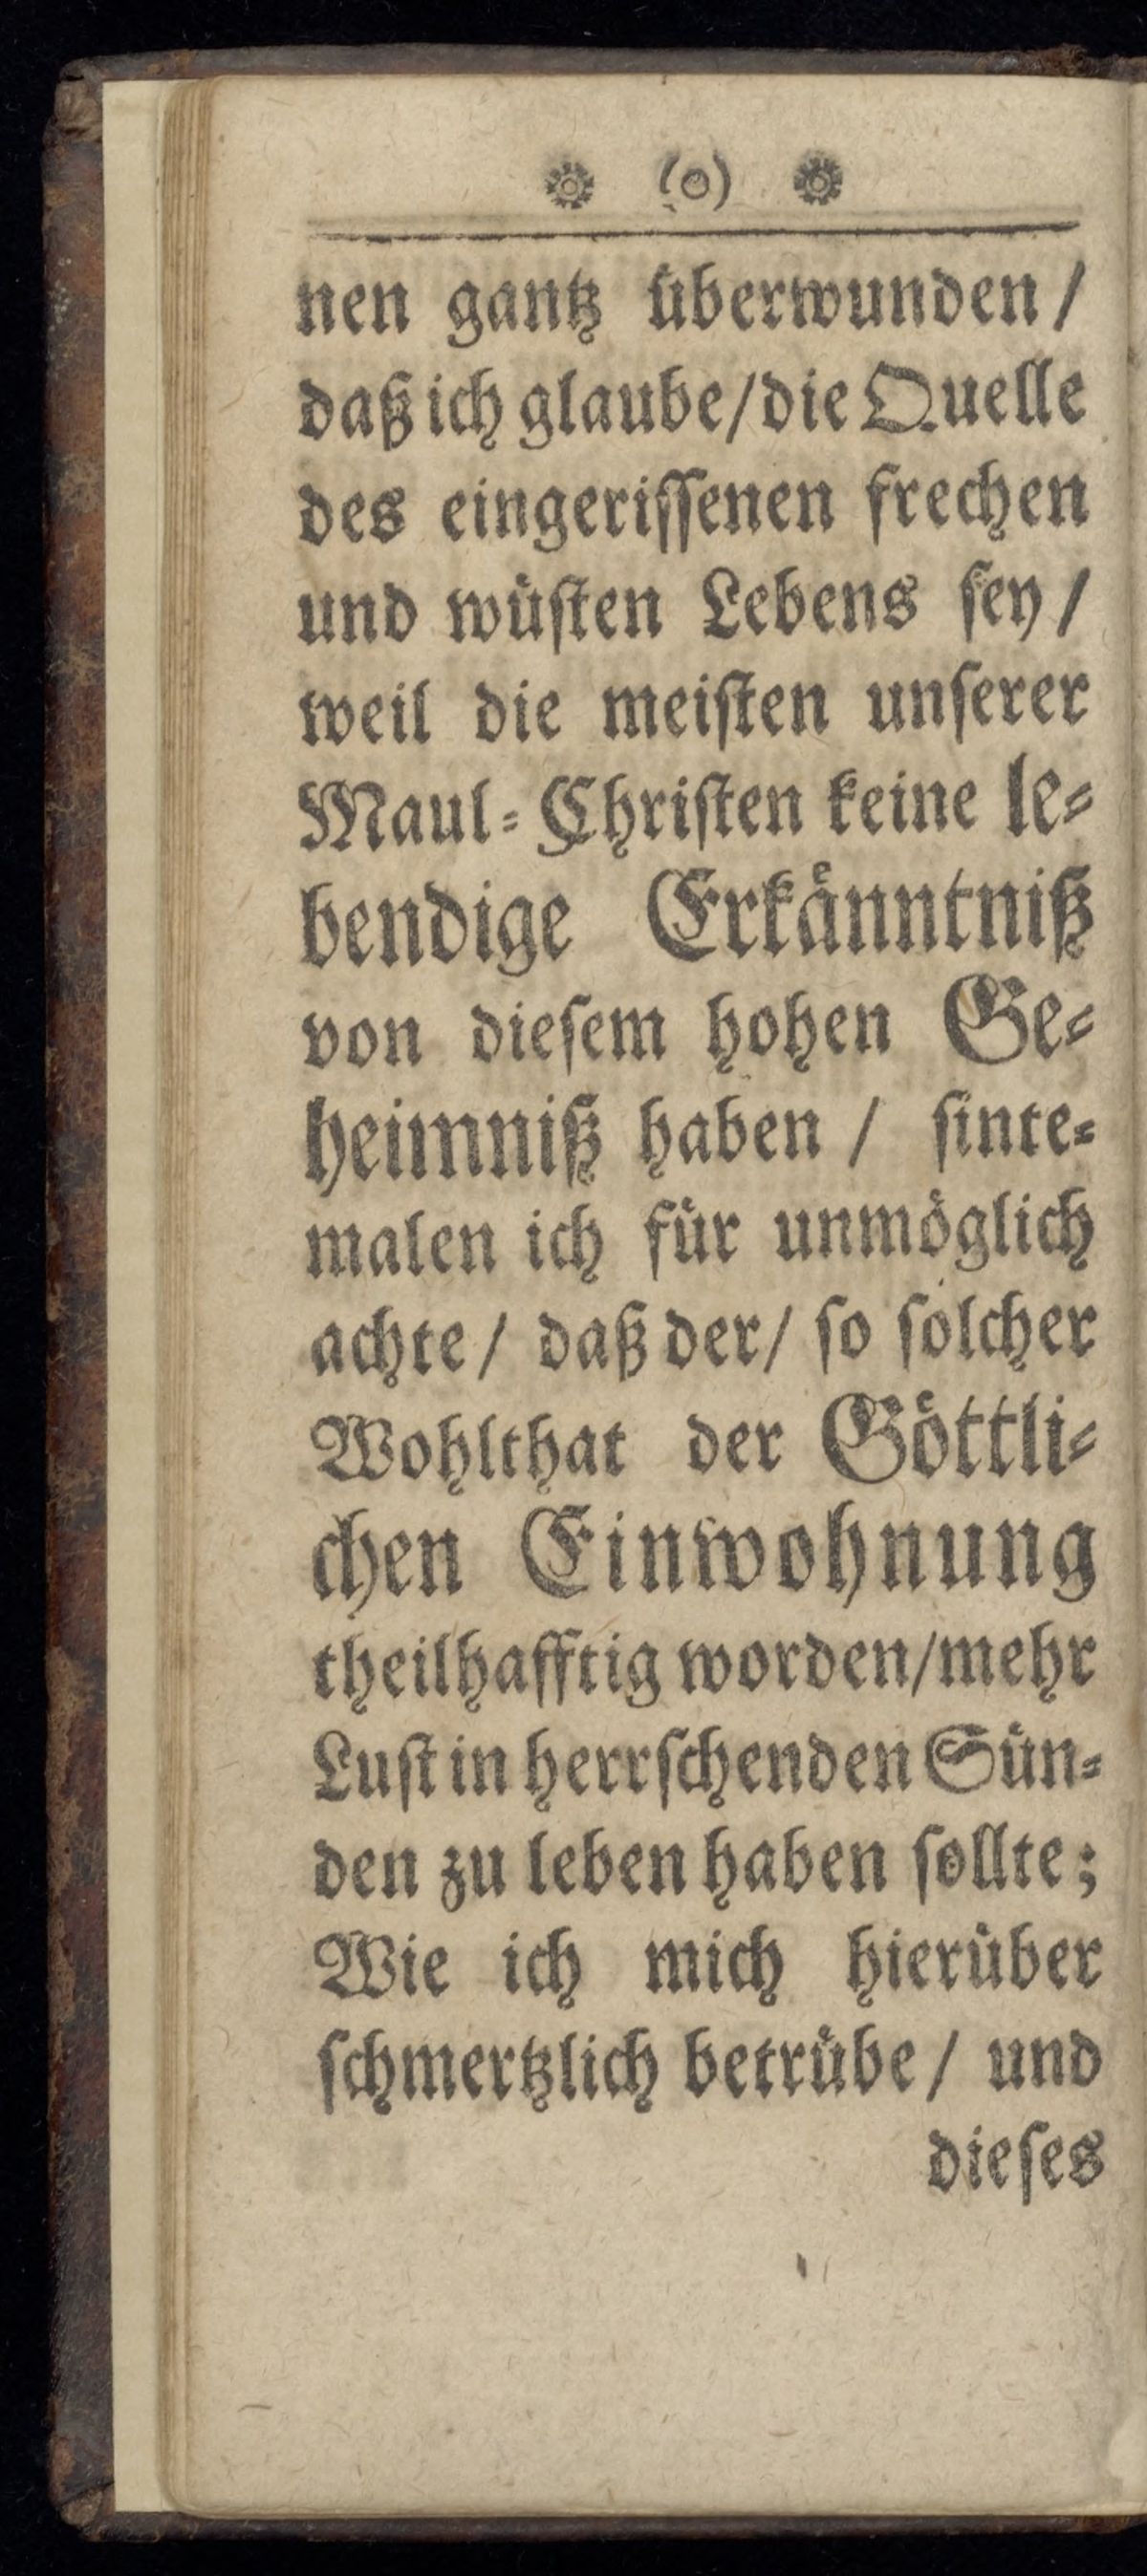 ❁ (o) ❁
nen gantz uͤberwunden /
daß ich glaube/die Quelle
des eingeriſſenen frechen
und wuͤſten Lebens ſey /
weil die meiſten unſerer
Maul-Chriſten keine le-
bendige Erkaͤnntniß
von dieſem hohen Ge-
heimniß haben / ſinte-
malen ich fuͤr unmoͤglich
achte / daß der / ſo ſolcher
Wohlthat der Goͤttli-
chen Einwohnung
theilhafftig worden/mehr
Luſt in herrſchenden Suͤn-
den zu leben haben ſollte;
Wie ich mich hieruͤber
ſchmertzlich betruͤbe / und
dieſes